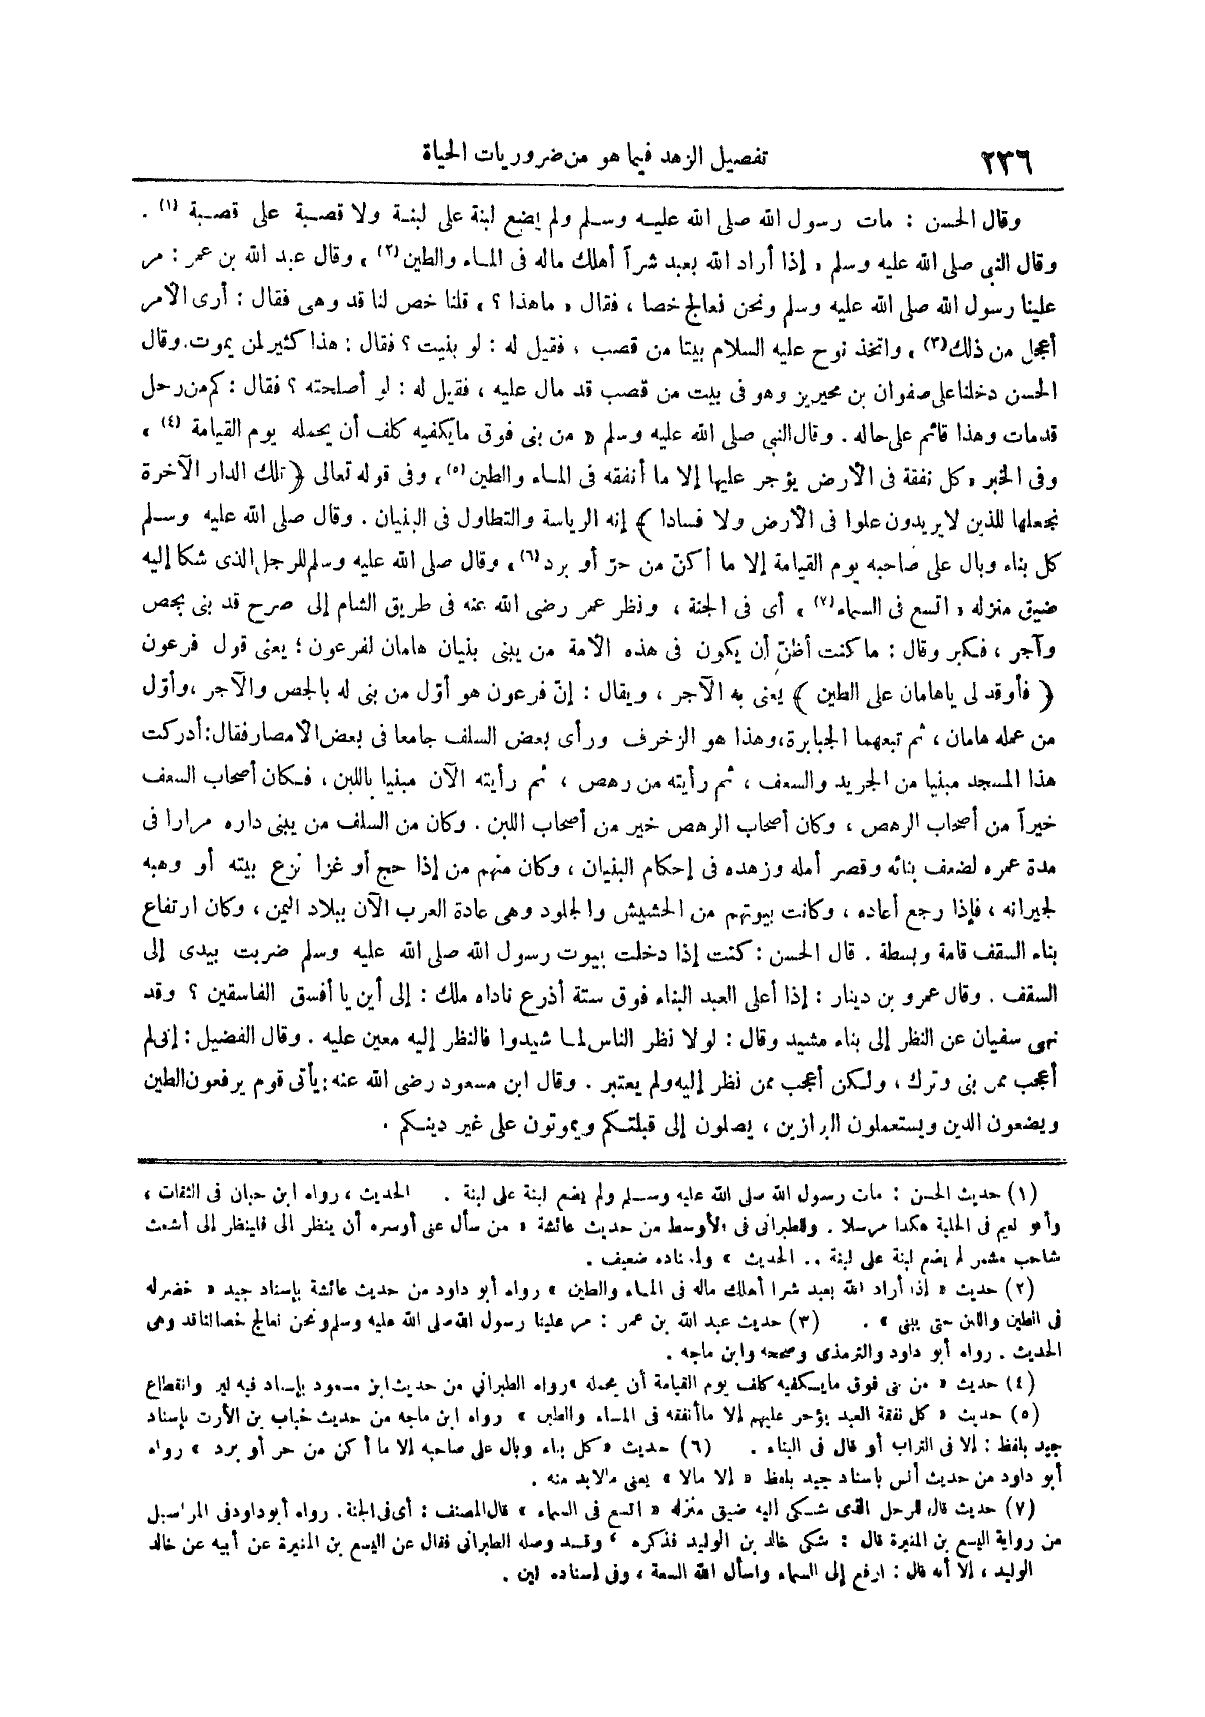 ٢٣٦
تفصيل الزهد فيما هو من ضروريات الحياة
وقال الحسن : مات رسول الله صلى الله عليه وسلم ولم يضع لبنة على لبنة ولا قصبة على قصبة (١) .
وقال النبي صلى الله عليه وسلم « إذا أراد الله بعبد شراً أهلك ماله فى الماء والطين(٢) » وقال عبد الله بن عمر : مر
علينا رسول الله صلى الله عليه وسلم ونحن نعالج خصا ، فقال « ماهذا ؟ » قلنا خص لنا قد وهى فقال : أرى الأمر
أعجل من ذلك(٣) » واتخذ نوح عليه السلام بيتا من قصب ، فقيل له : لو بنيت ؟ فقال : هذا كثير لمن يموت. وقال
الحسن دخلنا على صفوان بن محيريز وهو فى بيت من قصب قد مال عليه ، فقيل له : لو أصلحته ؟ فقال : كم من رجل
قدمات وهذا قائم على حاله . وقال النبي صلى الله عليه وسلم « من بنى فوق مايكفيه كلف أن يحمله يوم القيامة (٤) »
وفى الخبر « كل نفقة فى الأرض يؤجر عليها إلا ما أنفقه فى الماء والطين(٥) » وفى قوله تعالى ﴿ تلك الدار الآخرة
نجعلها للذين لايريدون علوا فى الأرض ولا فسادا ﴾ إنه الرياسة والتطاول فى البنيان . وقال صلى الله عليه وسلم
كل بناء وبال على صاحبه يوم القيامة إلا ما أكنّ من حرّ أو برد(٦) » وقال صلى الله عليه وسلم للرجل الذى شكا إليه
ضيق منزله « اتسع فى السماء(٧) » أى فى الجنة ، ونظر عمر رضى الله عنه فى طريق الشام إلى صرح قد بنى بجص
وآجر ، فكبر وقال : ماكنت أظنّ أن يكون فى هذه الأمة من يبنى بنيان هامان لفرعون ؛ يعنى قول فرعون
﴿ فأوقد لى ياهامان على الطين ﴾ يعنى به الآجر ، ويقال : إنّ فرعون هو أوّل من بنى له بالجص والآجر ، وأوّل
من عمله هامان ، ثم تبعهما الجبابرة، وهذا هو الزخرف ورأى بعض السلف جامعا فى بعض الأمصار فقال: أدركت
هذا المسجد مبنيا من الجريد والسعف ، ثم رأيته من رهص ، ثم رأيته الآن مبنيا باللبن ، فكان أصحاب السعف
خيراً من أصحاب الرهص ، وكان أصحاب الرهص خير من أصحاب اللبن . وكان من السلف من يبنى داره مرارا فى
مدة عمره لضعف بنائه وقصر أمله وزهده فى إحكام البنيان ، وكان منهم من إذا حج أو غزا نزع بيته أو وهبه
لجيرانه ، فإذا رجع أعاده ، وكانت بيوتهم من الحشيش والجلود وهى عادة العرب الآن ببلاد اليمن ، وكان ارتفاع
بناء السقف قامة وبسطة . قال الحسن : كنت إذا دخلت بيوت رسول الله صلى الله عليه وسلم ضربت بيدى إلى
السقف . وقال عمرو بن دينار : إذا أعلى العبد البناء فوق ستة أذرع ناداه ملك : إلى أين يا أفسق الفاسقين ؟ وقد
نهى سفيان عن النظر إلى بناء مشيد وقال : لولا نظر الناس لما شيدوا فالنظر إليه معين عليه . وقال الفضيل : إنى لم
أعجب ممن بنى وترك ، ولكن أعجب ممن نظر إليه ولم يعتبر . وقال ابن مسعود رضى الله عنه: يأتى قوم يرفعون الطين
ويضعون الدين ويستعملون البراذين ، يصلون إلى قبلتكم ويموتون على غير دينكم .
(١) حديث الحسن : مات رسول الله صلى الله عليه وسلم ولم يضع لبنة على لبنة . الحديث ، رواه ابن حبان فى الثقات ،
وأبو نعيم فى الحلية هكذا مرسلا . وللطبرانى فى الأوسط من حديث عائشة « من سأل عنى أوسره أن ينظر الى فلينظر إلى أشعث
شاحب مشمر لم يضع لبنة على لبنة .. الحديث » وإسناده ضعيف .
(٢) حديث « إذا أراد الله بعبد شرا أهلك ماله فى الماء والطين » رواه أبو داود من حديث عائشة بإسناد جيد « خضر له
فى الطين واللبن حتى يبنى » . (٣) حديث عبد الله بن عمر : مر علينا رسول الله صلى الله عليه وسلم ونحن نعالج خصا لنا قد وهى
الحديث . رواه أبو داود والترمذى وصححه وابن ماجه .
(٤) حديث « من بنى فوق مايكفيه كلف يوم القيامة أن يحمله » رواه الطبراني من حديث ابن مسعود بإسناد فيه لين وانقطاع
(٥) حديث « كل نفقة العبد يؤجر عليها إلا ماأنفقه فى الماء والطين » رواه ابن ماجه من حديث خباب بن الأرت بإسناد
جيد بلفظ : إلا فى التراب أو قال فى البناء . (٦) حديث « كل بناء وبال على صاحبه إلا ما أكن من حر أو برد » رواه
أبو داود من حديث أنس باسناد جيد بلفظ « إلا مالا » يعنى مالابد منه .
(٧) حديث قال للرجل الذى شكى اليه ضيق منزله « اتسع فى السماء » قال المصنف : أى فى الجنة . رواه أبو داود فى المراسيل
من رواية اليسع بن المغيرة قال : شكى خالد بن الوليد فذكره ، وقد وصله الطبرانى فقال عن اليسع بن المغيرة عن أبيه عن خالد
الوليد ، إلا أنه قال : ارفع إلى السماء واسأل الله السعة ، وفى إسناده لين .